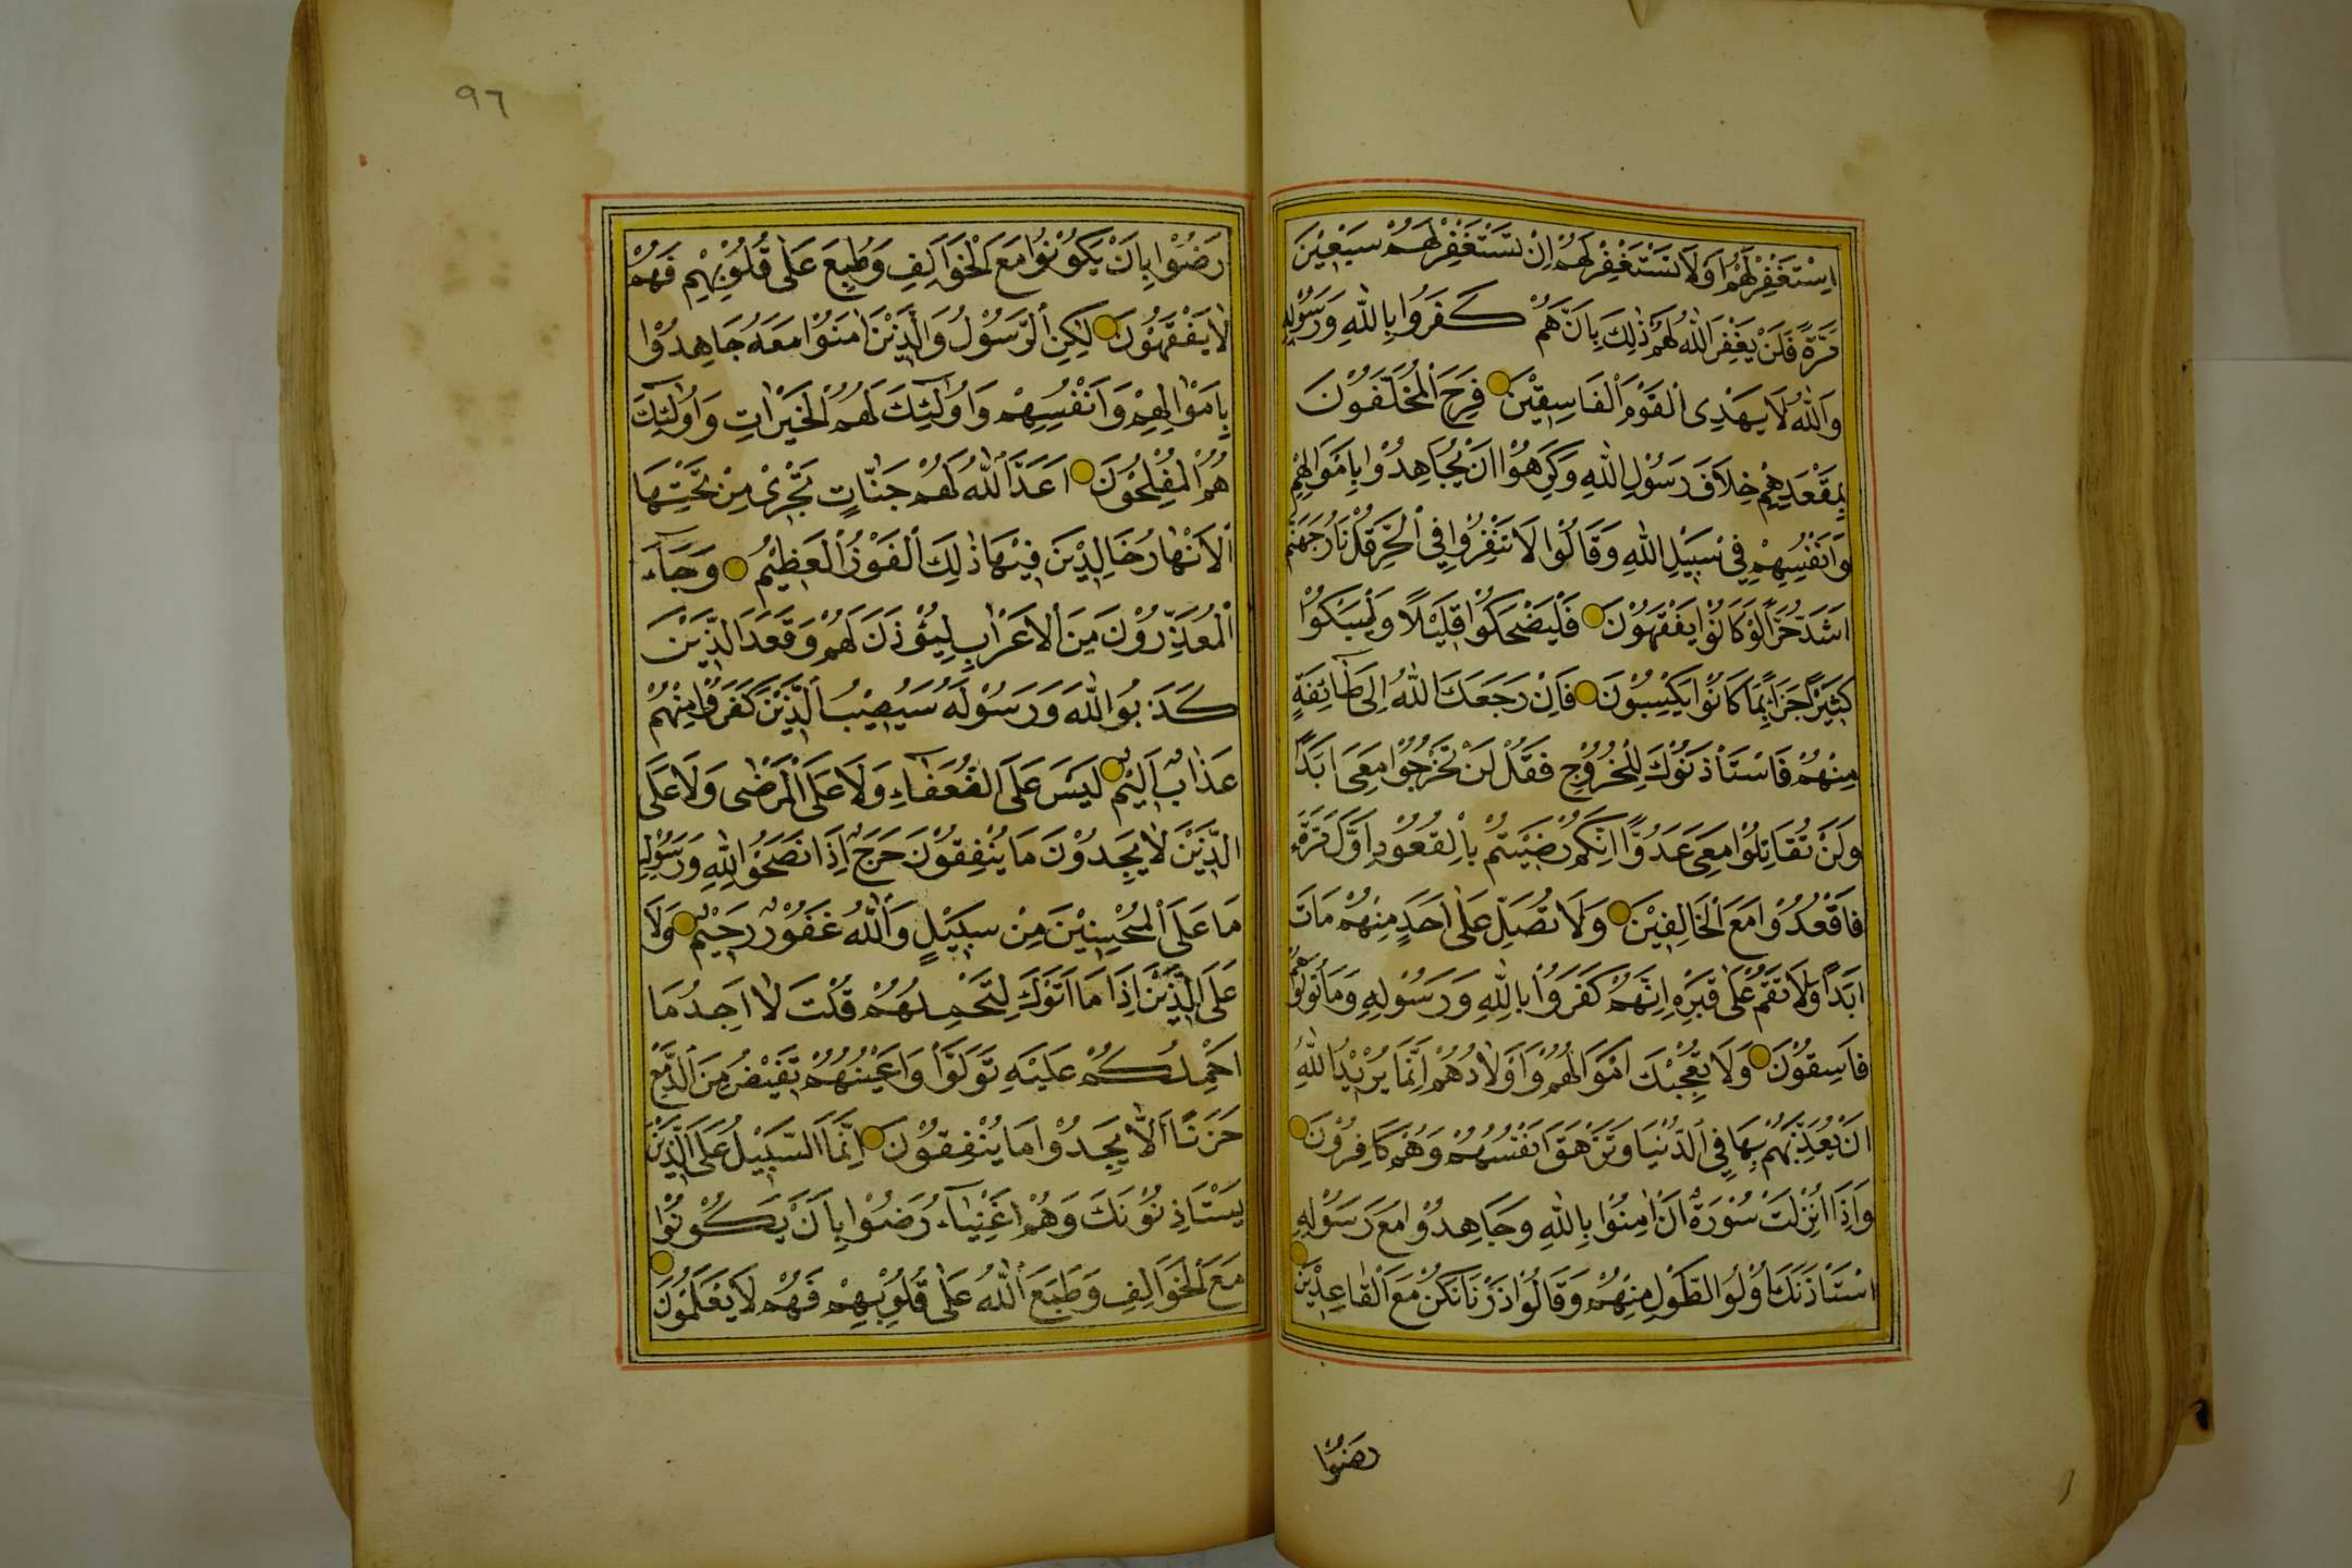 اِسْتَغْفِرْ لَهُمْ اَوْ لَا تَسْتَغْفِرْ لَهُمْ اِنْ تَسْتَغْفِرْ لَهُمْ سَبْعِيْنَ
مَرَّةً فَلَنْ يَغْفِرَ اللّٰهُ لَهُمْ ذٰلِكَ بِاَنَّهُمْ كَفَرُوا بِاللّٰهِ وَرَسُوْلِهِ
وَاللّٰهُ لَا يَهْدِى الْقَوْمَ الْفَاسِقِيْنَ فَرِحَ الْمُخَلَّفُوْنَ
بِمَقْعَدِهِمْ خِلَافَ رَسُوْلِ اللّٰهِ وَكَرِهُوْا اَنْ يُجَاهِدُوْا بِاَمْوَالِهِمْ
وَاَنْفُسِهِمْ فِى سَبِيْلِ اللّٰهِ وَقَالُوْا لَا تَنْفِرُوْا فِي الْحَرِّ قُلْ نَارُ جَهَنَّمَ
اَشَدُّ حَرًّا لَوْ كَانُوْا يَفْقَهُوْنَ فَلْيَضْحَكُوْا قَلِيْلًا وَلْيَبْكُوْا
كَثِيْرًا جَزَاءً بِمَا كَانُوْا يَكْسِبُوْنَ فَاِنْ رَجَعَكَ اللّٰهُ اِلٰى طَآئِفَةٍ
مِنْهُمْ فَاسْتَأْذَنُوْكَ لِلْخُرُوْجِ فَقُلْ لَنْ تَخْرُجُوْا مَعِىَ اَبَدًا
وَلَنْ تُقَاتِلُوْا مَعِىَ عَدُوًّا اِنَّكُمْ رَضِيْتُمْ بِالْقُعُوْدِ اَوَّلَ مَرَّةٍ
فَاقْعُدُوْا مَعَ الْخَالِفِيْنَ وَلَا تُصَلِّ عَلٰى اَحَدٍ مِنْهُمْ مَاتَ
اَبَدًا وَلَا تَقُمْ عَلٰى قَبْرِهِ اِنَّهُمْ كَفَرُوْا بِاللّٰهِ وَرَسُوْلِهِ وَمَاتُوْا وَهُمْ
فَاسِقُوْنَ وَلَا تُعْجِبْكَ اَمْوَالُهُمْ وَاَوْلَادُهُمْ اِنَّمَا يُرِيْدُ اللّٰهُ
اَنْ يُعَذِّبَهُمْ بِهَا فِى الدُّنْيَا وَتَزْهَقَ اَنْفُسُهُمْ وَهُمْ كَافِرُوْنَ
وَاِذَا اُنْزِلَتْ سُوْرَةٌ اَنْ اٰمِنُوْا بِاللّٰهِ وَجَاهِدُوْا مَعَ رَسُوْلِهِ
اسْتَأْذَنَكَ اُوْلُوا الطَّوْلِ مِنْهُمْ وَقَالُوْا ذَرْنَا نَكُنْ مَعَ الْقَاعِدِيْنَ
رضوا
٩٦
رَضُوْا بِاَنْ يَكُوْنُوْا مَعَ الْخَوَالِفِ وَطُبِعَ عَلٰى قُلُوْبِهِمْ فَهُمْ
لَا يَفْقَهُوْنَ لٰكِنِ الرَّسُوْلُ وَالَّذِيْنَ اٰمَنُوْا مَعَهُ جَاهَدُوْا
بِاَمْوَالِهِمْ وَاَنْفُسِهِمْ وَاُولٰٓئِكَ لَهُمُ الْخَيْرَاتِ وَاُولٰٓئِكَ
هُمُ الْمُفْلِحُوْنَ اَعَدَّ اللّٰهُ لَهُمْ جَنَّاتٍ تَجْرِىْ مِنْ تَحْتِهَا
الْاَنْهَارُ خَالِدِيْنَ فِيْهَا ذٰلِكَ الْفَوْزُ الْعَظِيْمُ وَجَآءَ
الْمُعَذِّرُوْنَ مِنَ الْاَعْرَابِ لِيُؤْذَنَ لَهُمْ وَقَعَدَ الَّذِيْنَ
كَذَبُوا اللّٰهَ وَرَسُوْلَهُ سَيُصِيْبُ الَّذِيْنَ كَفَرُوْا مِنْهُمْ
عَذَابٌ اَلِيْمٌ لَيْسَ عَلَى الضُّعَفَآءِ وَلَا عَلَى الْمَرْضٰى وَلَا عَلَى
الَّذِيْنَ لَا يَجِدُوْنَ مَا يُنْفِقُوْنَ حَرَجٌ اِذَا نَصَحُوْا لِلّٰهِ وَرَسُوْلِهِ
مَا عَلَى الْمُحْسِنِيْنَ مِنْ سَبِيْلٍ وَاللّٰهُ غَفُوْرٌ رَحِيْمٌ وَلَا
عَلَى الَّذِيْنَ اِذَا مَا اَتَوْكَ لِتَحْمِلَهُمْ قُلْتَ لَا اَجِدُ مَا
اَحْمِلُكُمْ عَلَيْهِ تَوَلَّوْا وَاَعْيُنُهُمْ تَفِيْضُ مِنَ الدَّمْعِ
حَزَنًا اَلَّا يَجِدُوْا مَا يُنْفِقُوْنَ اِنَّمَا السَّبِيْلُ عَلَى الَّذِيْنَ
يَسْتَأْذِنُوْنَكَ وَهُمْ اَغْنِيَآءُ رَضُوْا بِاَنْ يَكُوْنُوْا
مَعَ الْخَوَالِفِ وَطَبَعَ اللّٰهُ عَلٰى قُلُوْبِهِمْ فَهُمْ لَا يَعْلَمُوْنَ